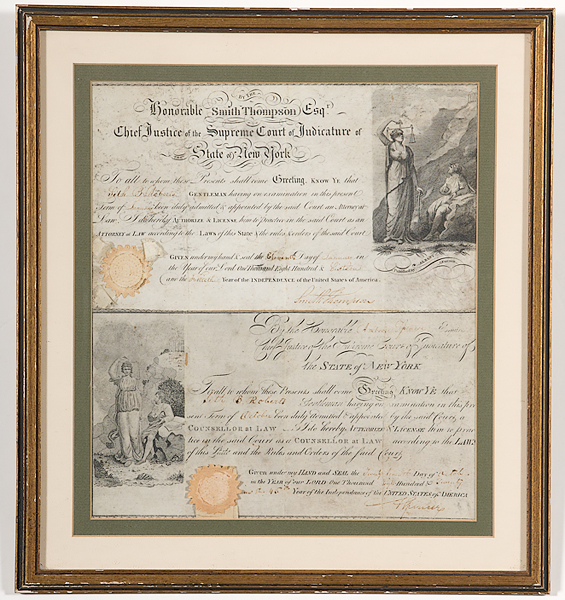 BY THE
Honorable Smith Thompson Esqr.
Chief Justice of the Supreme Court of Judicature of
State of New York
To all to whom these Presents shall come Greeting. KNOW YE that
GENTLEMAN having on examination in this present
Term of been duly admitted & appointed by the said Court an Attorney at
Law. I do hereby AUTHORIZE & LICENSE him to practice in the said Court as an
ATTORNEY at LAW according to the LAWS of this State & the rules & orders of the said Court
GIVEN under my hand & seal the Day of in
the Year of our Lord One Thousand Eight Hundred &
and the Year of the INDEPENDENCE of the United States of America.
Smith Thompson
By the Honorable
Chief Justice of the Supreme Court of Judicature of
the STATE of NEW YORK
To all to whom these Presents shall come Greeting KNOW YE that
Roberts Gentleman having on examination in this pre
sent Term of October been duly admitted & appointed by the said Court, a
COUNSELLOR at LAW I do hereby AUTHORIZE & LICENSE him to prac
tice in the said Court as a COUNSELLOR AT LAW according to the LAWS
of this State and the Rules and Orders of the said Court
GIVEN under my HAND and SEAL the Day of
in the YEAR of our LORD One Thousand Hundred &
45th Year of the Independence of the UNITED STATES of AMERICA